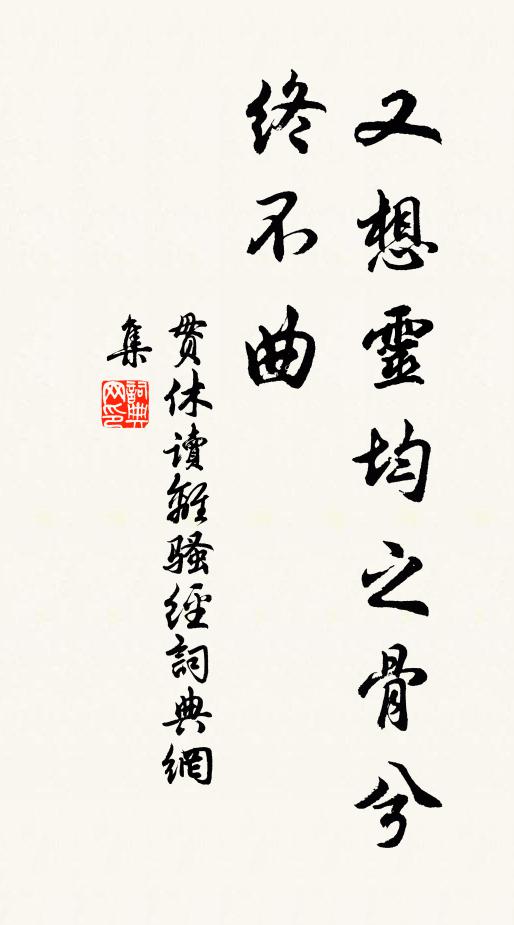 又想靈均之骨兮
终不曲
贯休读離骚經詞典網
集
詞典
网印